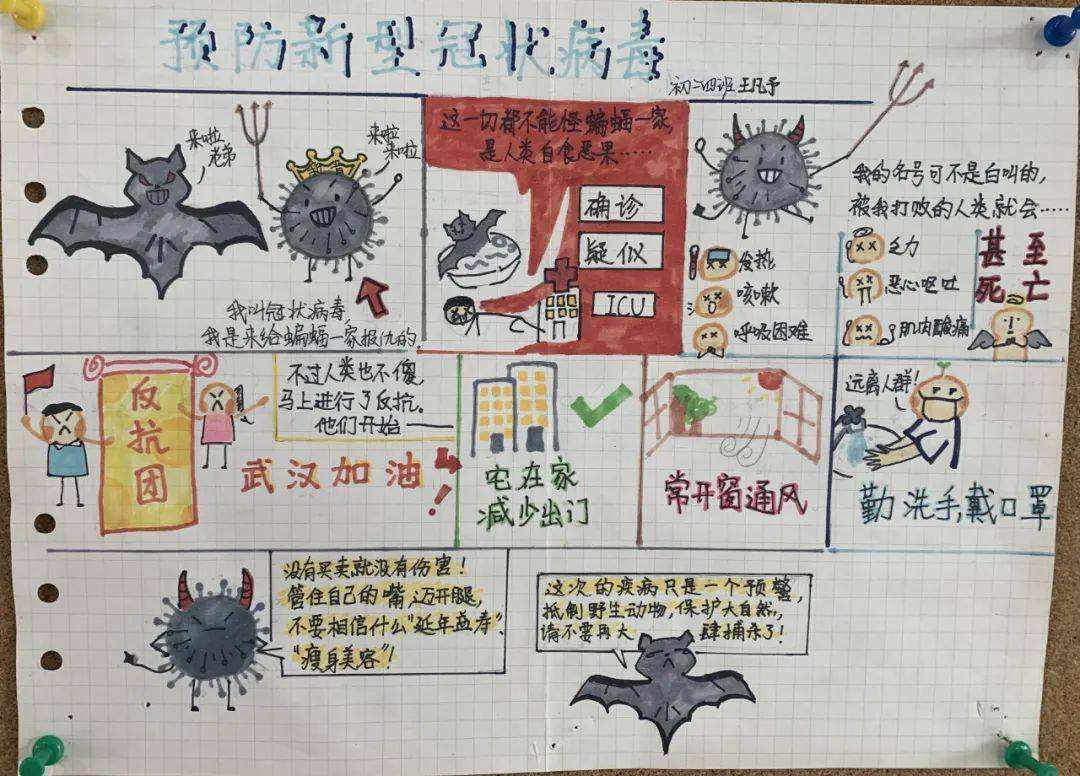 预防新型冠状病毒
初一四班 王凡予
来啦
老弟
来啦
来啦
我叫冠状病毒
我是来给蝙蝠一家报仇的.
这一切都不能怪蝙蝠一家,
是人类自食恶果……
确诊
疑似
ICU
我的名号可不是白叫的,
被我打败的人类就会……
发热
咳嗽
呼吸困难
乏力
恶心呕吐
肌肉酸痛
甚至
死亡
反抗团
不过人类也不傻,
马上进行了反抗.
他们开始——
武汉加油!
宅在家
减少出门
常开窗通风
远离人群!
勤洗手,戴口罩
没有买卖就没有伤害!
管住自己的嘴,迈开腿,
不要相信什么“延年益寿”,
“瘦身美容”!
这次的疾病只是一个预警,
抵制野生动物,保护大自然,
请不要再大肆捕杀了!